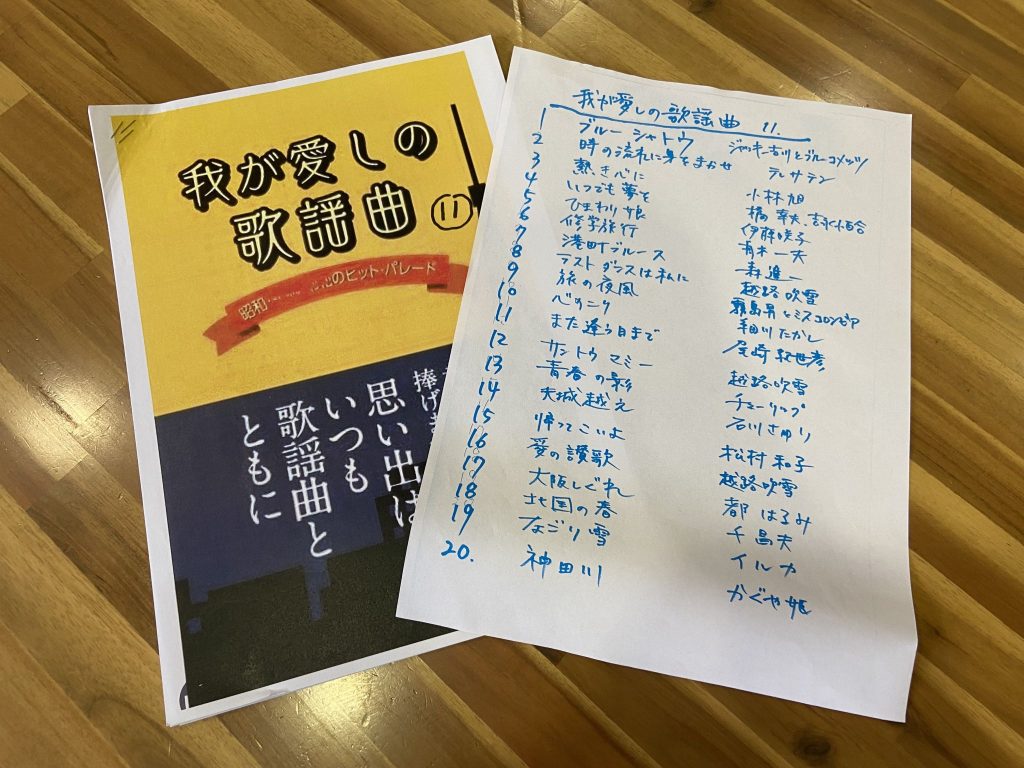 我が愛しの
歌謡曲 ⑪
昭和・
心のヒット・パレード
捧げ
思い出は
いつも
歌謡曲と
ともに
我が愛しの歌謡曲 11.
1 ブルーシャトウ ジャッキー吉川とブルーコメッツ
2 時の流れに身をまかせ テレサテン
3 熱き心に 小林旭
4 いつでも夢を 橋幸夫、吉永小百合
5 ひまわり娘 伊藤咲子
6 修学旅行 舟木一夫
7 港町ブルース 森進一
8 ラストダンスは私に 越路吹雪
9 旅の夜風 霧島昇とミスコロンビア
10 心のこり 細川たかし
11 また逢う日まで 尾崎紀世彦
12 サントワマミー 越路吹雪
13 青春の影 チューリップ
14 天城越え 石川さゆり
15 帰ってこいよ 松村和子
16 愛の讃歌 越路吹雪
17 大阪しぐれ 都はるみ
18 北国の春 千昌夫
19 なごり雪 イルカ
20. 神田川 かぐや姫